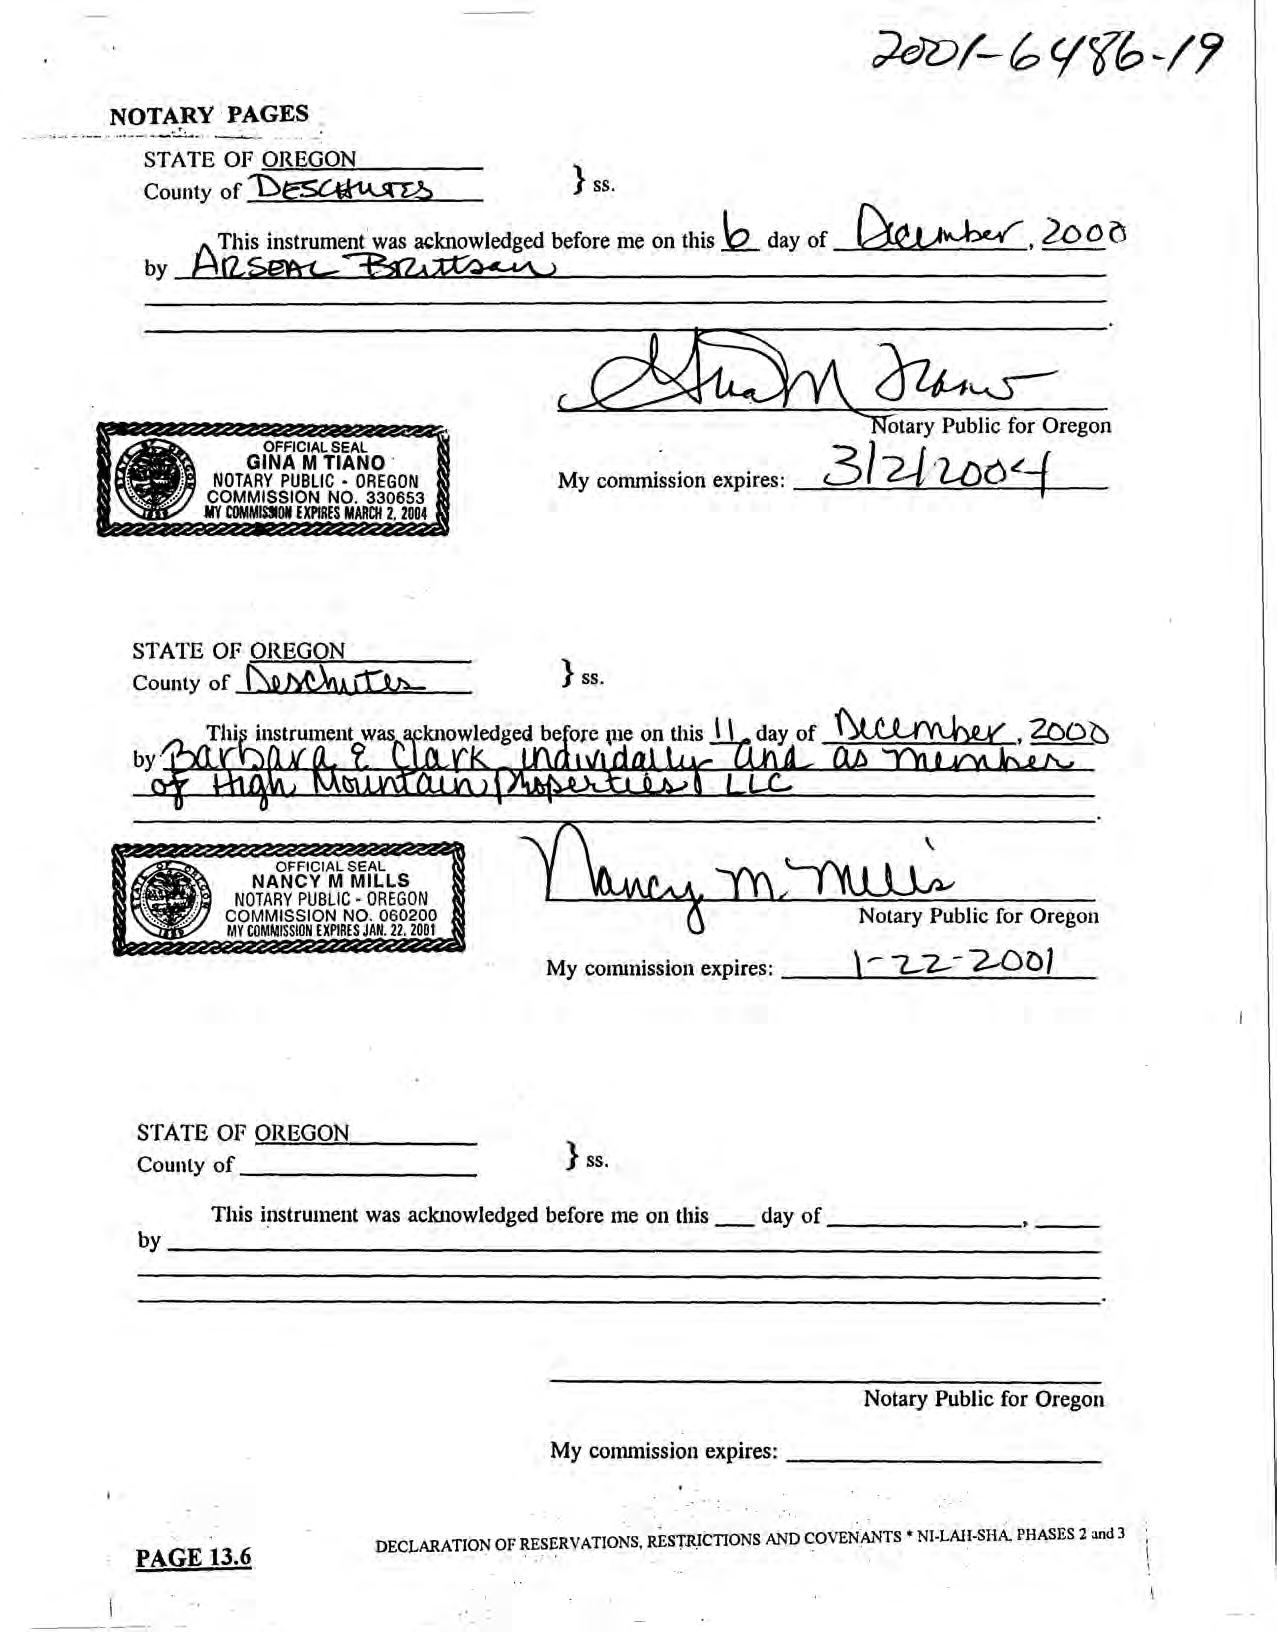 2001-6486-19
NOTARY PAGES
STATE OF OREGON
County of DESCHUTES } ss.
This instrument was acknowledged before me on this 6 day of December, 2000
by ARSEAL Brittsan
Gina M Tiano
Notary Public for Oregon
OFFICIAL SEAL
GINA M TIANO
NOTARY PUBLIC - OREGON
COMMISSION NO. 330653
MY COMMISSION EXPIRES MARCH 2, 2004
STATE OF OREGON
1859
My commission expires: 3/2/2004
STATE OF OREGON
County of Deschutes } ss.
This instrument was acknowledged before me on this 11 day of December, 2000
by Barbara E Clark individally and as member
of High Mountain Properties LLC
Nancy M. Mills
Notary Public for Oregon
OFFICIAL SEAL
NANCY M MILLS
NOTARY PUBLIC - OREGON
COMMISSION NO. 060200
MY COMMISSION EXPIRES JAN. 22, 2001
STATE OF OREGON
1859
My commission expires: 1-22-2001
STATE OF OREGON
County of } ss.
This instrument was acknowledged before me on this day of ,
by
Notary Public for Oregon
My commission expires:
PAGE 13.6
DECLARATION OF RESERVATIONS, RESTRICTIONS AND COVENANTS * NI-LAH-SHA, PHASES 2 and 3